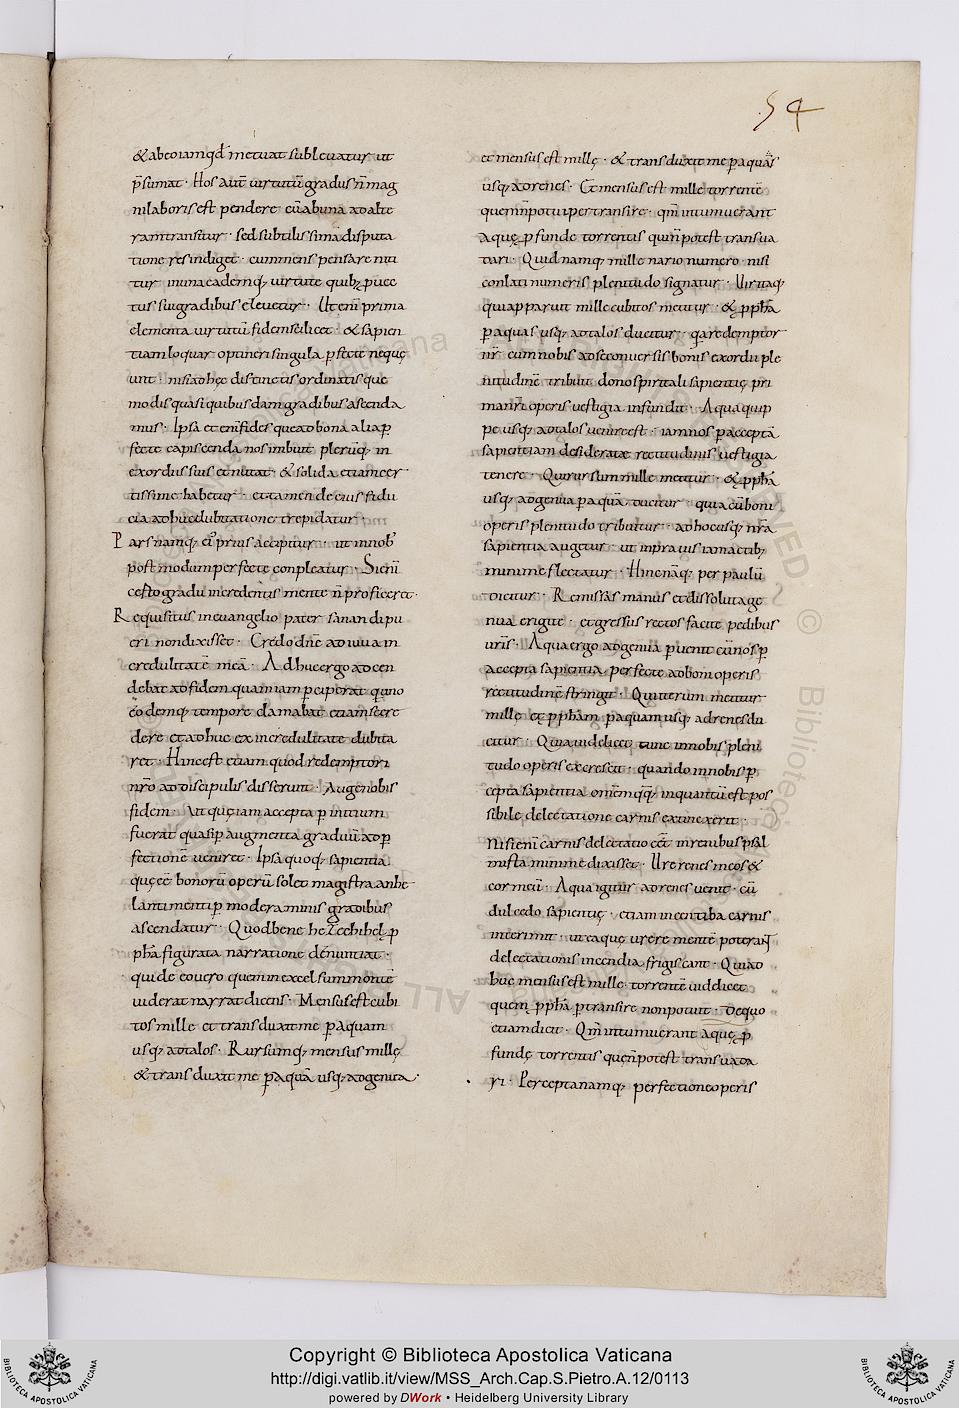 54
& ab eo iam qđ metuat sublevatur ut
p̄sumat · Hos aut̄ virtutū gradus n̄ mag
ni laboris est pendere cū ab una ad alte
ram transitur · sed subtilissima disputa
tione res indiget · cum mens pensare niti
tur in una eademq; virtute quib; p̄vec
tus sui gradibus elevetur · Ut enī prima
elementa virtutū fidem scilicet · & sapien
tiam loquar optineri singula p̄fecte nequeę
unt · nisi ad hęc distinctis ordinatisque
modis quasi quibusdam gradibus ascenda
mus · Ipsa etenī fides que ad bona alia p̄
fecte capiscenda nos imbuit plerūq; in
exordiis suis et nutat · & solida etiam cer
tissime habetur · et tamen de eius fidu
cia adhuc dubitatione trepidatur ·
Pars namq; ei prius accipitur · ut in nob̄
postmodum perfecte conpleatur · Si enī
certo gradu in credentis mente n̄ proficeret ·
Requisitus in evangelio pater sanandi pu
eri non dixisset · Credo dn̄e adiuva in
credulitatē meā · Adhuc ergo ascen
debat ad fidem quam iam p̄ceperat qui uno
eodemq; tempore clamabat et iam se cre
dere et adhuc ex incredulitate dubita
ret · Hinc est etiam quod redemptori
nr̄o ad discipulis disserunt · Auge nobis
fidem · Ut quę iam accepta p̄ initium
fuerat quasi p̄ augmenta graduū ad p̄
fectionē veniret · Ipsa quoq; sapientia
quę eē bonorū operū solet magistra anhe
lanti menti p̄ moderaminis gradibus
ascendatur · Quod bene hezechihel p̄
ph̄a figurata narratione dēnuntiat ·
qui de eo vero quem in excelsum montē
viderat narrat dicens · Mensus est cubi
tos mille et transduxit me p̄ aquam
usq; ad talos · Rursumq; mensus millę
& transduxit me p̄ aquā usq; ad genua ·
et mensus est millę · & transduxit me p̄ aquas
usq; ad renes · Et mensus est mille torrentē
quem n̄ potui pertransire · qm̄ intumuerant
aquę p̄funde torrentis qui n̄ potest transva
dari · Quid namq; millenario numero · nisi
conlati numeris plenitudo signatur · Vir itaq;
qui apparuit mille cubitos metitur · & p̄ph̄a
p̄ aquas usq; ad talos ducitur · q̄a redemptor
nr̄ cum nobis ad se conversis boni exordii ple
nitudinē tribuit dono spiritali sapientię pri
ma nr̄i operis vestigia infundit · Aqua quip
pe usq; ad talos venire est · iam nos p̄ acceptā
sapientiam desideratae rectitudinis vestigia
tenere · Qui rursum mille metitur · & p̄ph̄a
usq; ad genua p̄ aquā ducitur quia cū boni
operis plenitudo tribuitur · ad hoc usq; nr̄a
sapientia augetur · ut in pravis iam actib;
minime flectatur · Hinc nāq; per paulū
dicitur · Remissas manus et dissoluta ge
nua erigite · et gressus rectos facite pedibus
vr̄is · Aqua ergo ad genua p̄venit cū nos p̄
accepta sapientia perfecte ad boni operis
rectitudinē stringit · Qui iterum metitur
millę et p̄ph̄am p̄ aquam usq; ad renes du
citur · Quia videlicet tunc in nobis pleni
tudo operis excrescit · quando in nobis p̄
cepta sapientia omēm q̄q; in quantū est pos
sibile delectatione carnis extinxerit ·
Nisi enī carnis delectatio eēt in renibus psal
mista minime dixisset · Ure renes meos &
cor meū · Aqua igitur ad renes venit · cū
dulcedo sapientię · etiam incentiba carnis
interimit · ut ea quę urere mentē poterant
delectationis incendia frigiscant · Qui ad
huc mensus est mille · torrentē viddicet
quem p̄ph̄a p̄transire non potuit · De quo
etiam dicit · Qm̄ intumuerant aquę p̄
fundę torrentis que n̄ potest transvada
ri · Percepta namq; perfectione operis
Copyright © Biblioteca Apostolica Vaticana
http://digi.vatlib.it/view/MSS_Arch.Cap.S.Pietro.A.12/0113
powered by DWork • Heidelberg University Library